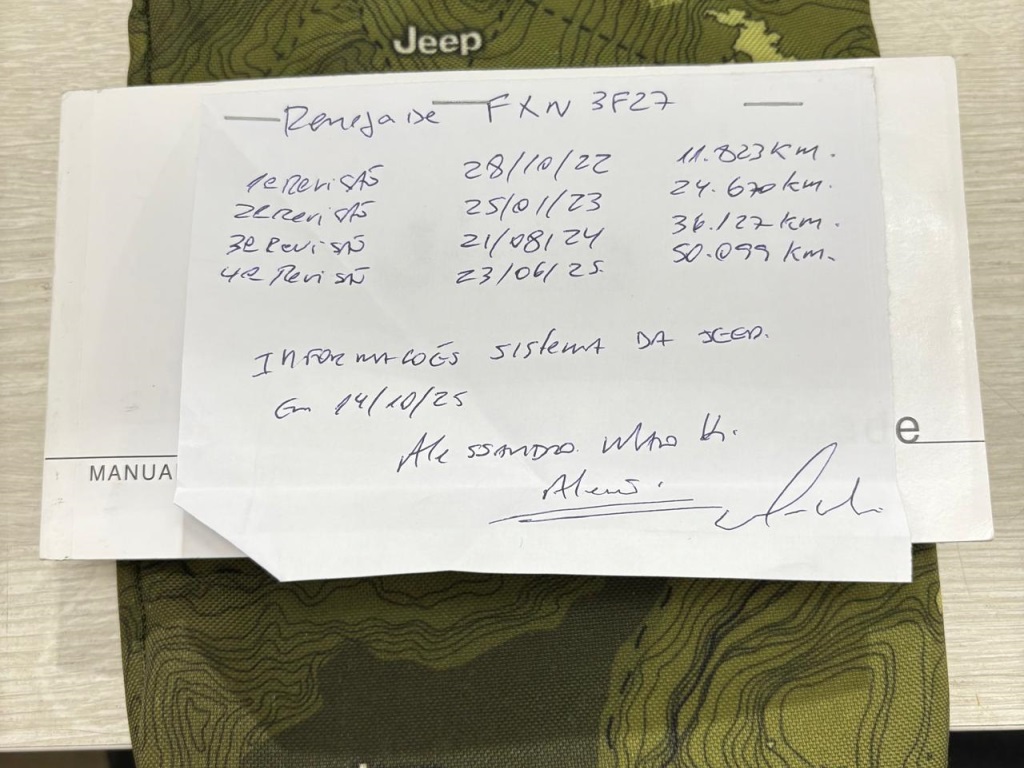 Jeep
Renegade FXN 3F27
1ª Revisão 28/10/22 11.823 Km.
2ª Revisão 25/01/23 24.670 Km.
3ª Revisão 21/08/24 36.127 Km.
4ª Revisão 23/06/25. 50.099 Km.
INFORMACOES sistema DA JEEP.
Em 14/10/25
Alessandro
MANUA
de